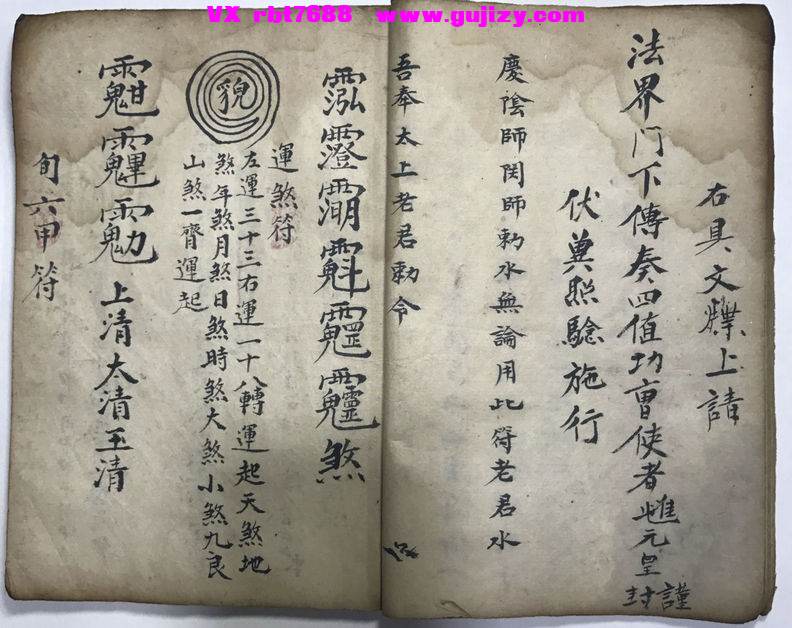 VX rbt7688 www.gujizy.com
右具文牒上請
法界門下傳奏四值功曹使者進元皇謹封
伏冀照驗施行
慶陰師罔師勅水無論用此符老君水
吾奉太上老君勅令
煞
運煞符
左運三十三右運一十八轉運起天煞地
煞年煞月煞日煞時煞大煞小煞九良
山煞一齊運起
貌
上清太清玉清
旬六甲符